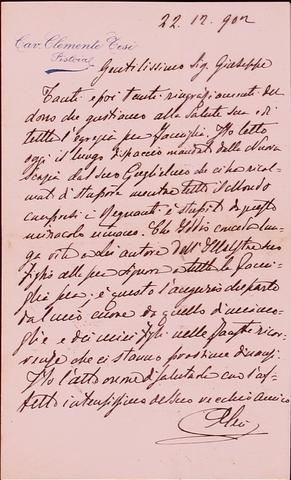 22. 12. 902
Cav. Clemente Tesi
Pistoia
Gentilissimo Sig. Giuseppe
Tanti e poi tanti ringraziamenti del
dono che gustiamo alla Salute Sua e di
tutta l'egregia Famiglia. Ho letto
oggi il lungo dispaccio mandato dalla Nuova
Scozia dal suo Guglielmo che ci ha ricol
mati di stupore mentre tutto il Mondo
compresi i Regnanti è stupito di questo
miracolo umano. Che Iddio conceda lun
ga vita a Lei autore dell'Illustre suo
Figlio alla Signora e tutta la Fami
glia è questo l'augurio che parte
dal mio cuore da quello di mia mo
glie e dei miei figli nelle fauste ricor
renze che ci stanno prossime dinanzi.
Ho l'alto onore di salutarla con l'af
fetto intensissimo del suo vecchio amico